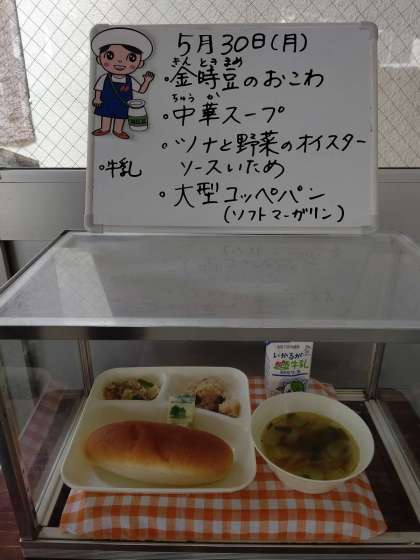 5月30日(月)
きんときまめ
・金時豆のおこわ
ちゅうか
・中華スープ
・ツナと野菜のオイスター
ソースいため
・牛乳
・大型コッペパン
(ソフトマーガリン)
いかるが
牛乳